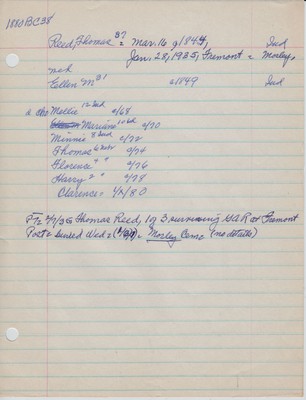 1880 BC 38
Reed, Thomas 37 = Mar. 16, 1844, Ind
Jan. 28, 1935, Fremont = Morley,
mich
Ellen M 31 1849 Ind
Mellie 12 Ind 1868
Mariane 10 1870
Minnie 8 Ind 1872
Thomas 6 1874
Florence 4 " 1876
Harry 2 " 1878
Clarence = 4/X/80
Thomas Reed, 1 of 3 surviving GAR at Fremont
Post = buried Wed = = Morley Cemc (no details)